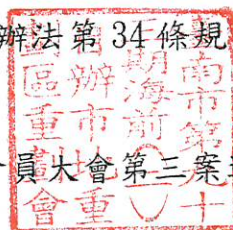 辦法第 34 條規
員大會第三案
南市第九十
期海前(一)
自辦市地重
劃區重劃會